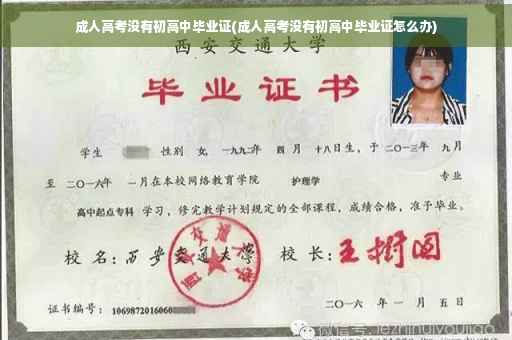 成人高考没有初高中毕业证(成人高考没有初高中毕业证怎么办)
西安交通大学
毕业证书
学生 性别 女, 一九九二年 四 月 十八日生, 于 二〇一三年 九月
至 二〇一六年 一月在本校网络教育学院 护理学 专业
高中起点专科 学习, 修完教学计划规定的全部课程, 成绩合格, 准予毕业。
校 名: 西安交通大学 校 长: 王树国
西安交通大学
证书编号: 1069872016060
二〇一六 年 一 月 五 日
微信号: jezhihuiyoujiao